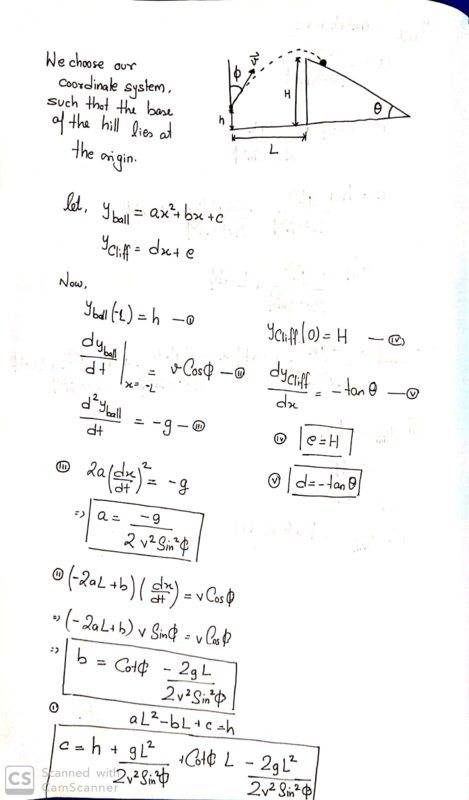 We choose our
coordinate system,
such that the base
of the hill lies at
the origin.
ϕ
v⃗
H
θ
h
L
let, y_ball = ax²+bx+c
y_Cliff = dx+e
Now,
y_ball(-L) = h — (i)
dy_ball/dt |_{x=-L} = v Cosϕ — (ii)
d²y_ball/dt = -g — (iii)
y_Cliff(0) = H — (iv)
dy_Cliff/dx = -tanθ — (v)
(iv) e=H
(v) d=-tanθ
(iii) 2a(dx/dt)² = -g
=> a = -g/2v²Sin²ϕ
(ii) (-2aL+b)(dx/dt) = v Cosϕ
=> (-2aL+b) v Sinϕ = v Cosϕ
=> b = Cotϕ - 2gL/2v²Sin²ϕ
(i) aL²-bL+c=h
c = h + gL²/2v²Sin²ϕ + Cotϕ L - 2gL²/2v²Sin²ϕ
CS Scanned with
CamScanner